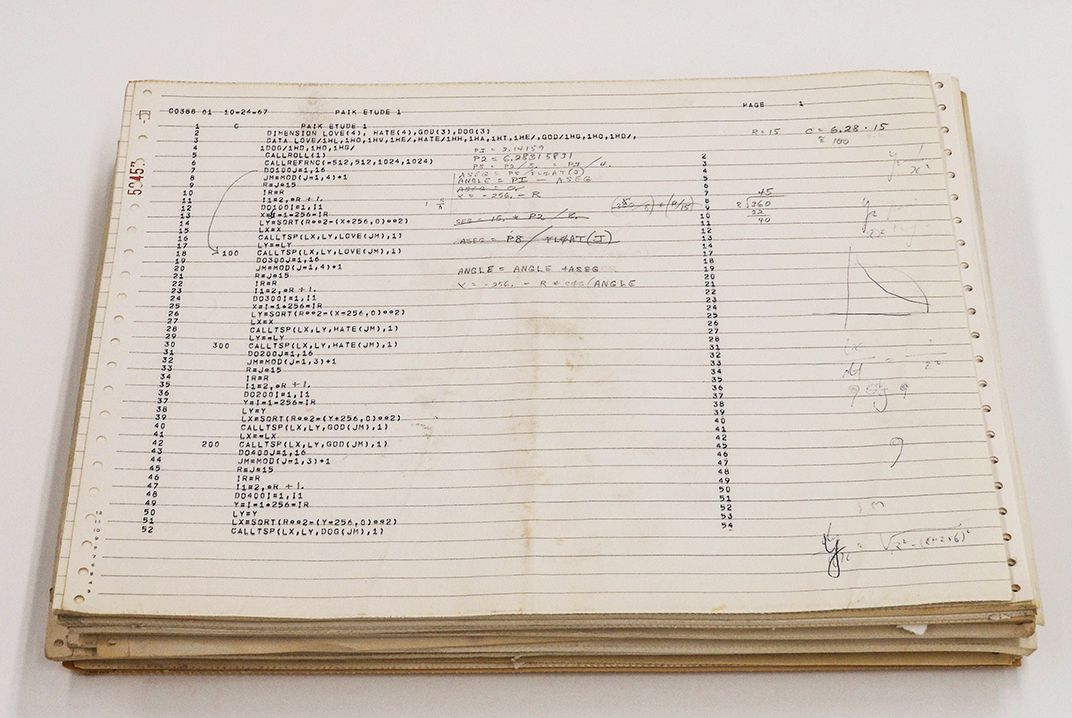 C0388 01 10-24-67 PAIK ETUDE 1 PAGE 1
1 C PAIK ETUDE 1
2 DIMENSION LOVE(4), HATE(4),GOD(3),DOG(3)
3 DATA LOVE/1HL,1HO,1HV,1HE/,HATE/1HH,1HA,1HT,1HE/,GOD/1HG,1HO,1HD/,
4 1DOG/1HD,1HO,1HG/
5 CALLROLL(1)
6 CALLREFRNC(-512,512,1024,1024)
7 DO100J=1,16
8 JM=MOD(J-1,4)+1
9 R=J*15
10 IR=R
11 I1=2,*R + 1.
12 DO100I=1,I1
13 X=I-1-256-IR
14 LY=SQRT(R**2-(X+256,0)**2)
15 LX=X
16 CALLTSP(LX,LY,LOVE(JM),1)
17 LY=-LY
18 100 CALLTSP(LX,LY,LOVE(JM),1)
19 DO300J=1,16
20 JM=MOD(J-1,4)+1
21 R=J*15
22 IR=R
23 I1=2,*R + 1.
24 DO300I=1,I1
25 X=I-1+256-IR
26 LY=SQRT(R**2-(X-256,0)**2)
27 LX=X
28 CALLTSP(LX,LY,HATE(JM),1)
29 LY=-LY
30 300 CALLTSP(LX,LY,HATE(JM),1)
31 DO200J=1,16
32 JM=MOD(J-1,3)+1
33 R=J*15
34 IR=R
35 I1=2,*R + 1.
36 DO200I=1,I1
37 Y=I-1-256-IR
38 LY=Y
39 LX=SQRT(R**2-(Y+256,0)**2)
40 CALLTSP(LX,LY,GOD(JM),1)
41 LX=-LX
42 200 CALLTSP(LX,LY,GOD(JM),1)
43 DO400J=1,16
44 JM=MOD(J-1,3)+1
45 R=J*15
46 IR=R
47 I1=2,*R + 1.
48 DO400I=1,I1
49 Y=I-1+256-IR
50 LY=Y
51 LX=SQRT(R**2-(Y-256,0)**2)
52 CALLTSP(LX,LY,DOG(JM),1)
PI = 3.14159
P2 = 6.28315831
ASEG = P8/FLOAT(J)
ANGLE = PI - ASEG
X = -256. - R
SEG = 15. * P2 / 8.
ASEG = P8 / FLOAT(J)
ANGLE = ANGLE + ASEG
X = -256. - R * COS(ANGLE
R = 15 C = 6.28 · 15
≅ 100
45
8 360
32
40
2
3
4
5
6
7
8
9
10
11
12
13
14
17
18
19
20
21
22
23
24
25
26
27
28
31
32
33
34
35
36
37
38
39
40
41
42
45
46
47
48
49
50
51
52
53
54